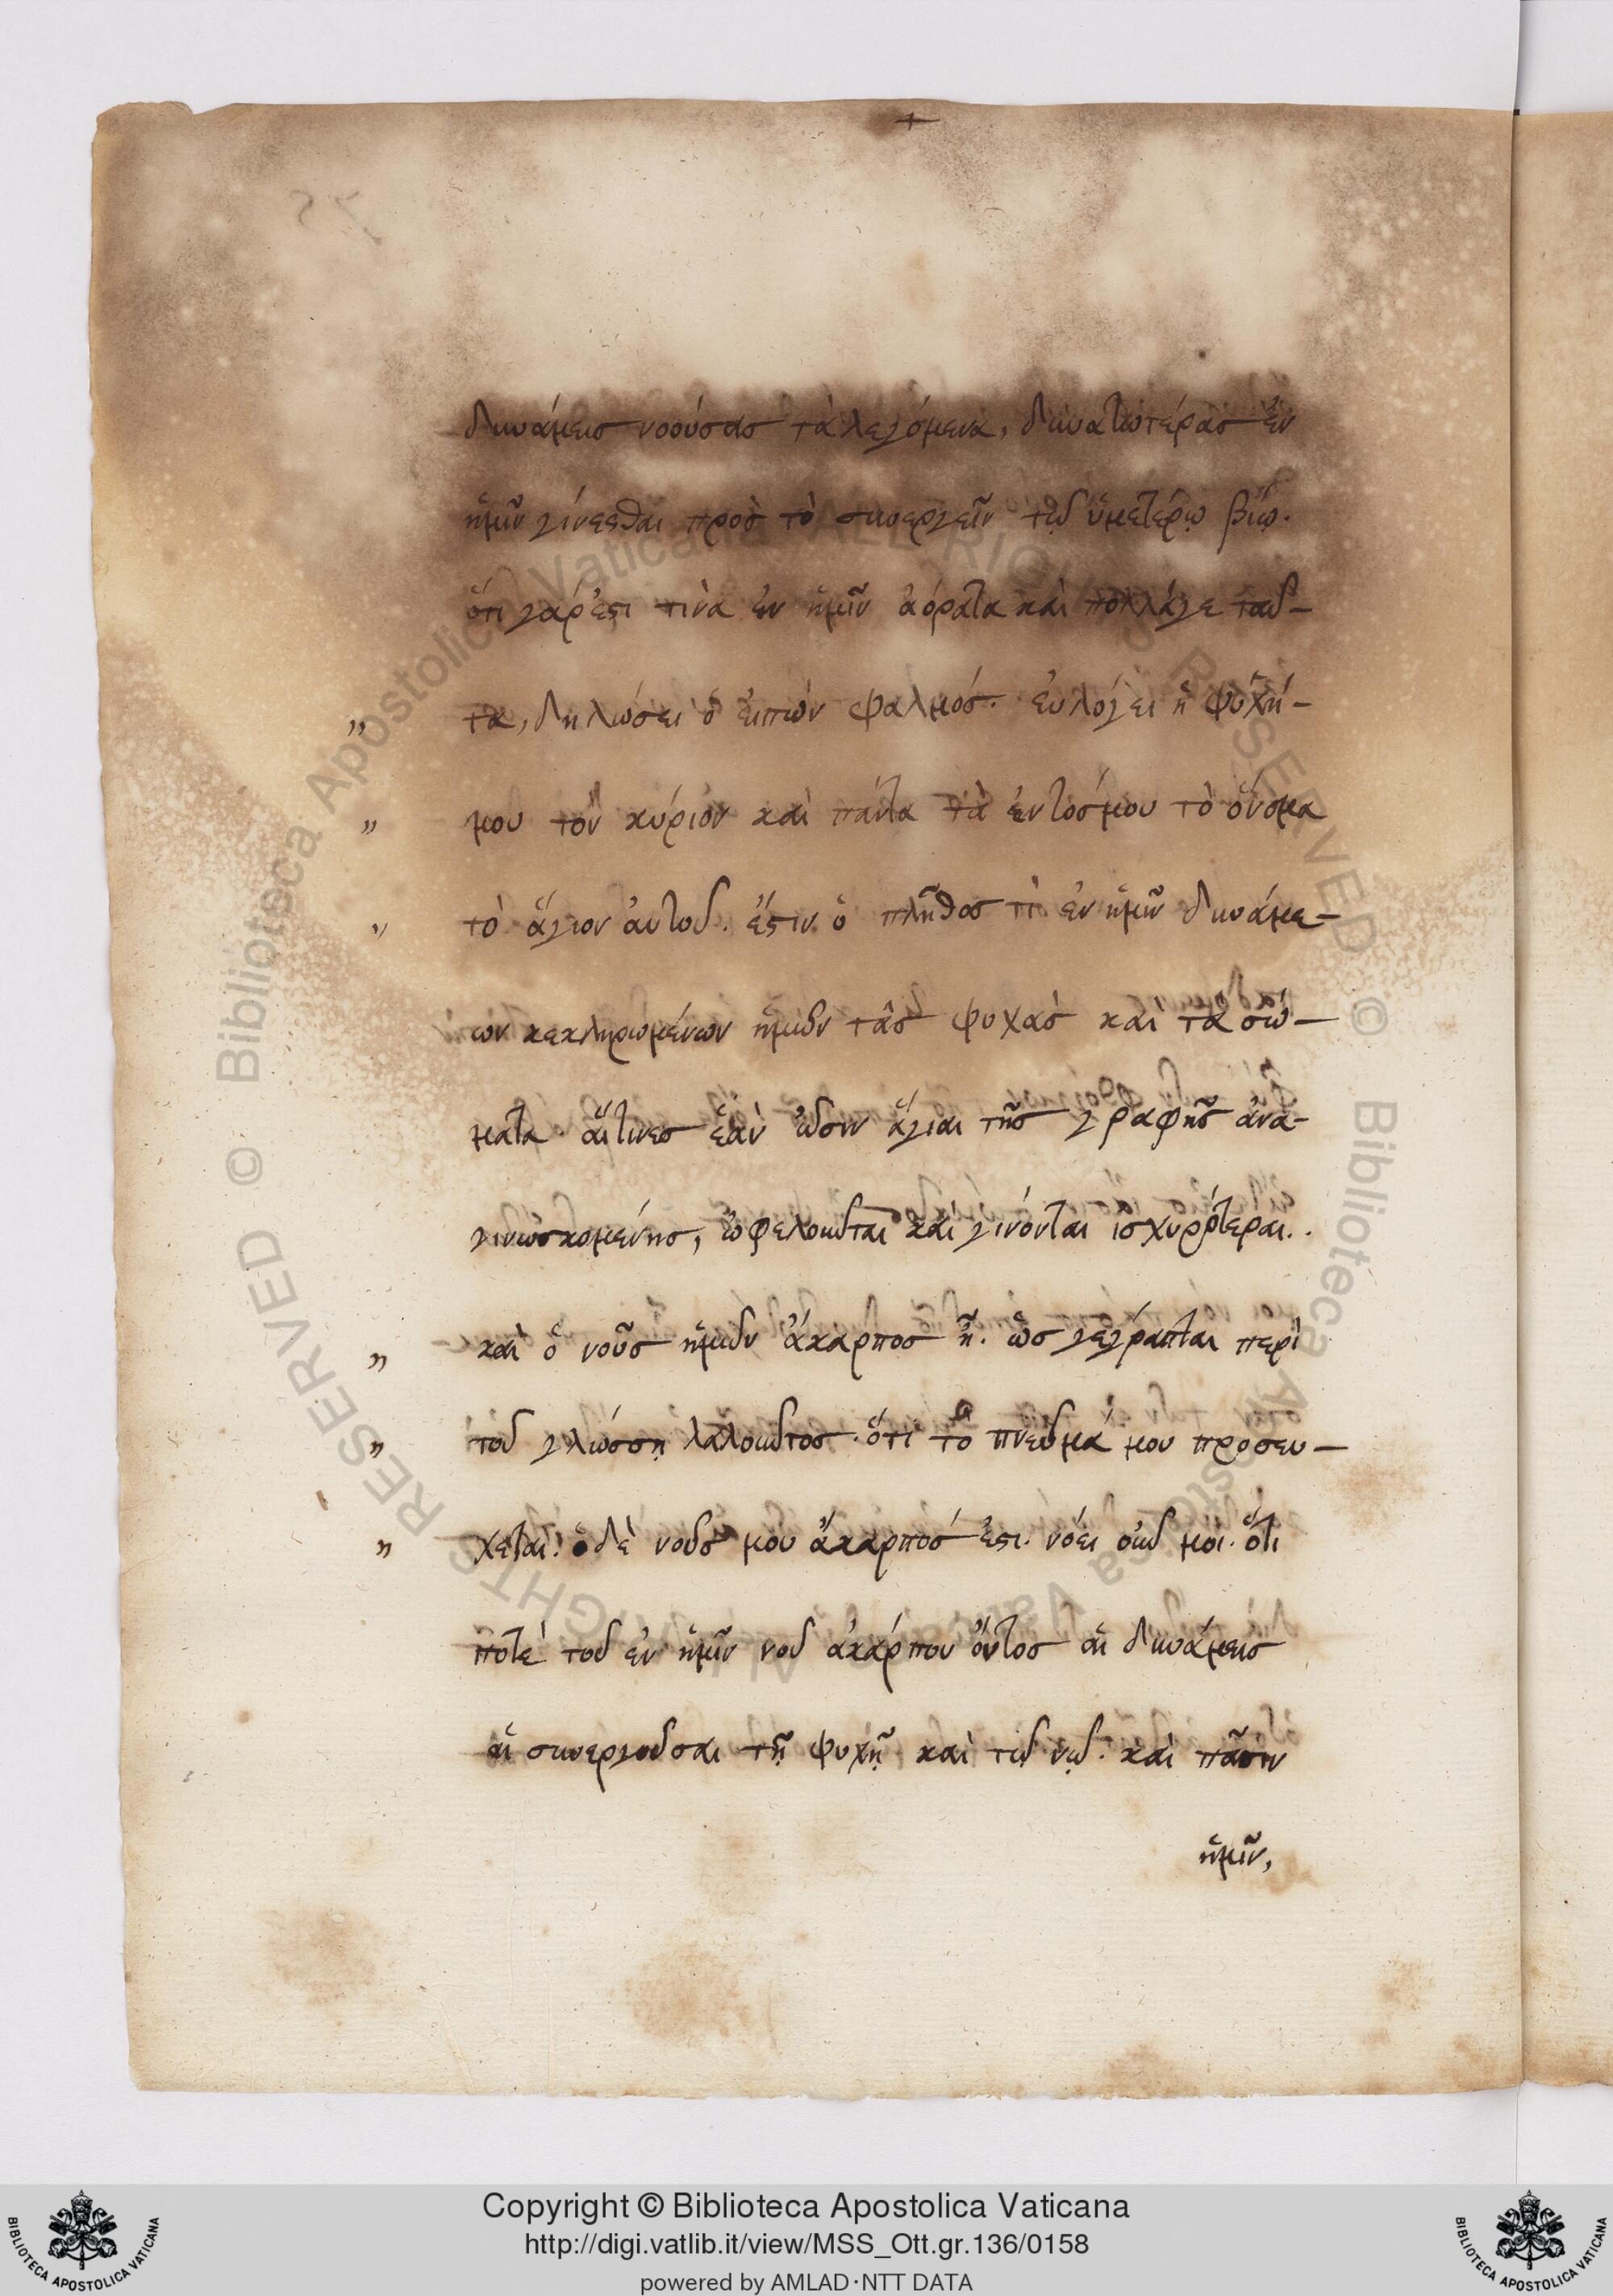 +
δυνάμεις νοούσας τὰ λεγόμενα, δυνατωτέρας ἐν
ἡμῖν γίνεσθαι πρὸς τὸ συνεργεῖν τῷ ἡμετέρῳ βίῳ.
ὅτι γάρ ἐστι τινὰ ἐν ἡμῖν ἀόρατα καὶ πολλάγε ταῦ-
„ τα, δηλώσει ὁ εἰπὼν ψαλμός. εὐλόγει ἡ ψυχή-
„ μου τὸν κύριον καὶ πάντα τὰ ἐντός μου τὸ ὄνομα
„ τὸ ἅγιον αὐτοῦ. ἔστιν ὁ πλῆθος τὶ ἐν ἡμῖν δυνάμε-
ων κεκληρωμένων ἡμῶν τὰς ψυχὰς καὶ τὰ σώ-
ματα. αἵτινες ἐὰν ὦσιν ἅγιαι τῆς γραφῆς ἀνα-
γινωσκομένης, ὠφελοῦνται καὶ γίνονται ἰσχυρότεραι..
„ καὶ ὁ νοῦς ἡμῶν ἄκαρπος ᾖ. ὡς γέγραπται περὶ
„ τοῦ γλώσσῃ λαλοῦντος. ὅτι τὸ πνεῦμά μου προσεύ-
„ χεται! ὁ δὲ νοῦς μου ἄκαρπός ἐστι. νόει οὖν μοι. ὅτι
ποτὲ τοῦ ἐν ἡμῖν νοῦ ἀκάρπου ὄντος αἱ δυνάμεις
αἱ συνεργοῦσαι τῇ ψυχῇ καὶ τῷ νῷ. καὶ πᾶσιν
ἡμῖν,
© Biblioteca Apostolica Vaticana ALL RIGHTS RESERVED
Copyright © Biblioteca Apostolica Vaticana
http://digi.vatlib.it/view/MSS_Ott.gr.136/0158
powered by AMLAD·NTT DATA
BIBLIOTECA APOSTOLICA VATICANA
BIBLIOTECA APOSTOLICA VATICANA